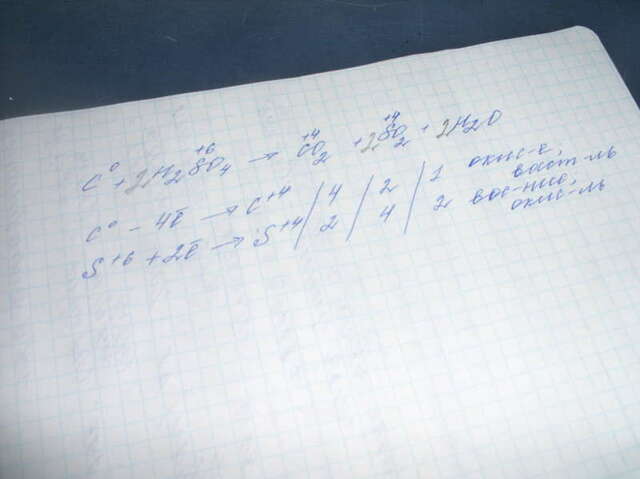 C⁰ + 2H₂S⁺⁶O₄ → C⁺⁴O₂ + 2S⁺⁴O₂ + 2H₂O
C⁰ - 4ē → C⁺⁴ / 4 / 2 / 1 окис-е, восст-ль
S⁺⁶ + 2ē → S⁺⁴ / 2 / 4 / 2 вос-ние, окис-ль